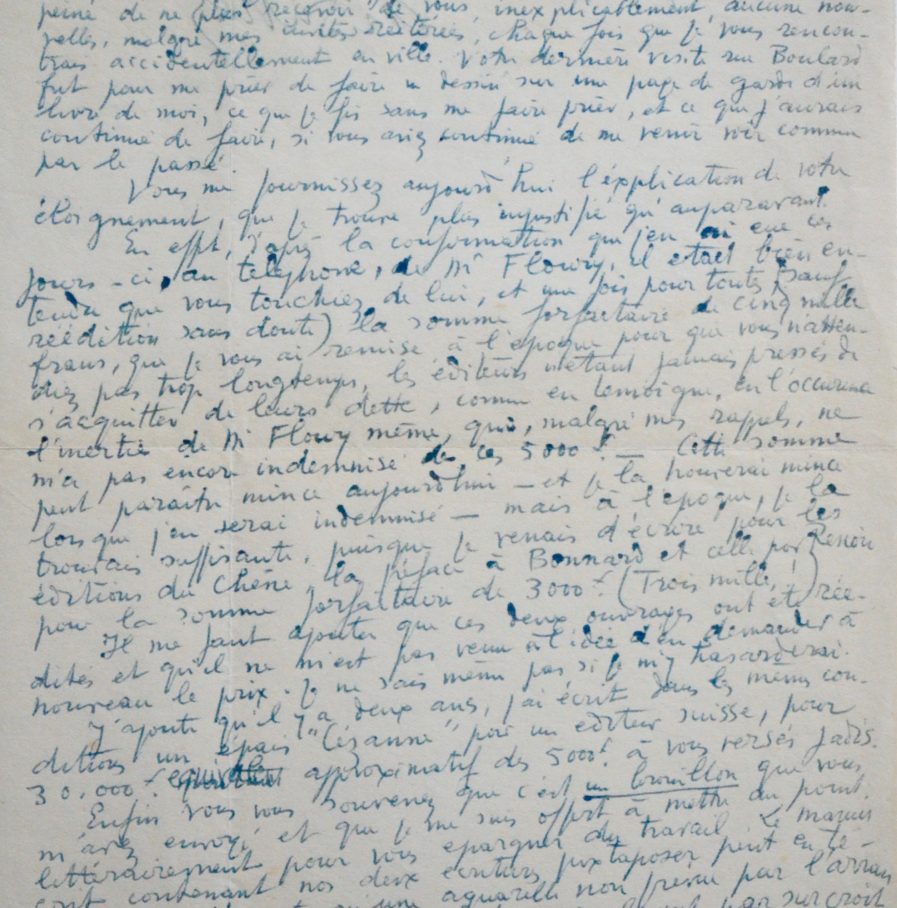 peiné de ne plus recevoir de vous, inexplicablement, aucune nou-
velles, malgré mes invites réitérées, chaque fois que je vous rencon-
trais accidentellement en ville. Votre dernière visite rue Boulard
fut pour me prier de faire un dessin sur une page de garde d'un
livre de moi, ce que je fis sans me faire prier, et ce que j'aurais
continué de faire, si vous aviez continué de me venir voir comme
par le passé.
Vous me fournissez aujourd'hui l'explication de votre
éloignement, que je trouve plus injustifié qu'auparavant.
En effet, d'après la confirmation que j'en ai eue ces
jours-ci, au téléphone, de Mr Floury, il était bien en-
tendu que vous touchiez de lui, et une fois pour toutes (sauf
réédition sans doute) la somme forfaitaire de cinq mille
francs, que je vous ai remise à l'époque pour que vous n'atten-
diez pas trop longtemps, les éditeurs n'étant jamais pressés de
s'acquitter de leurs dette, comme en témoigne, en l'occurence
l'inertie de Mr Floury même, qui, malgré mes rappels, ne
m'a pas encore indemnisé de ces 5000 f. — Cette somme
peut paraître mince aujourd'hui — et je la trouverai mince
lorsque j'en serai indemnisé — mais à l'époque, je la
trouvais suffisante, puisque je venais d'écrire pour les
éditions du Chêne la préface à Bonnard et celle pour Renoir
pour la somme forfaitaire de 3000 f. (Trois mille !)
Il me faut ajouter que ces deux ouvrages ont été réé-
dités et qu'il ne m'est pas venu à l'idée d'en demander à
nouveau le prix. Je ne sais même pas si je m'y hasarderai.
J'ajoute qu'il y a deux ans, j'ai écrit dans les mêmes con-
ditions un épais "Cézanne" pour un éditeur suisse, pour
30.000 f. équivalent approximatif des 5000 f. à vous versés jadis.
Enfin vous vous souvenez que c'est un brouillon que vous
m'avez envoyé et que je me suis offert à mettre au point
littérairement pour vous épargner du travail. Le manus
crit contenant nos deux écritures juxtaposées peut en té-
une aquarelle non prévue par l'arran
par surcroit